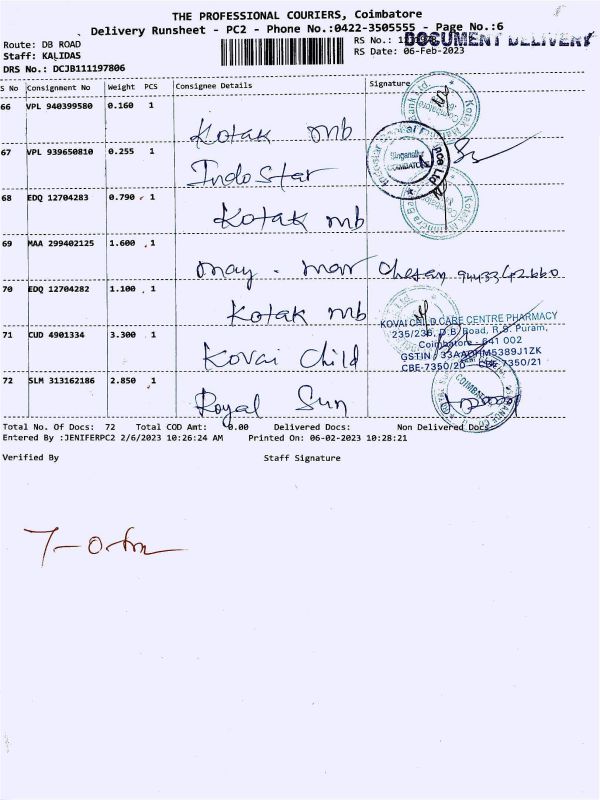 THE PROFESSIONAL COURIERS, Coimbatore
Delivery Runsheet - PC2 - Phone No.:0422-3505555 - Page No.:6
Route: DB ROAD
RS No.:
DOCUMENT DELIVERY
Staff: KALIDAS
RS Date: 06-Feb-2023
DRS No.: DCJB111197806
S No Consignment No Weight PCS Consignee Details Signature
66 VPL 940399580 0.160 1
Kotak mb
67 VPL 939650810 0.255 1
Singanallur
COIMBATORE
Indo Star
68 EDQ 12704283 0.790 1
Kotak mb
69 MAA 299402125 1.600 1
may. mar
70 EDQ 12704282 1.100 1
Kotak mb
KOVAI CHILD CARE CENTRE PHARMACY
235/236, D.B. Road, R.S. Puram,
Coimbatore - 641 002
71 CUD 4901334 3.300 1
Kovai Child
GSTIN : 33AADHM5389J1ZK
CBE-7350/20 CBE-7350/21
72 SLM 313162186 2.850 1
Royal Sun
Total No. Of Docs: 72 Total COD Amt: 0.00 Delivered Docs: Non Delivered Docs:
Entered By :JENIFERPC2 2/6/2023 10:26:24 AM Printed On: 06-02-2023 10:28:21
Verified By Staff Signature